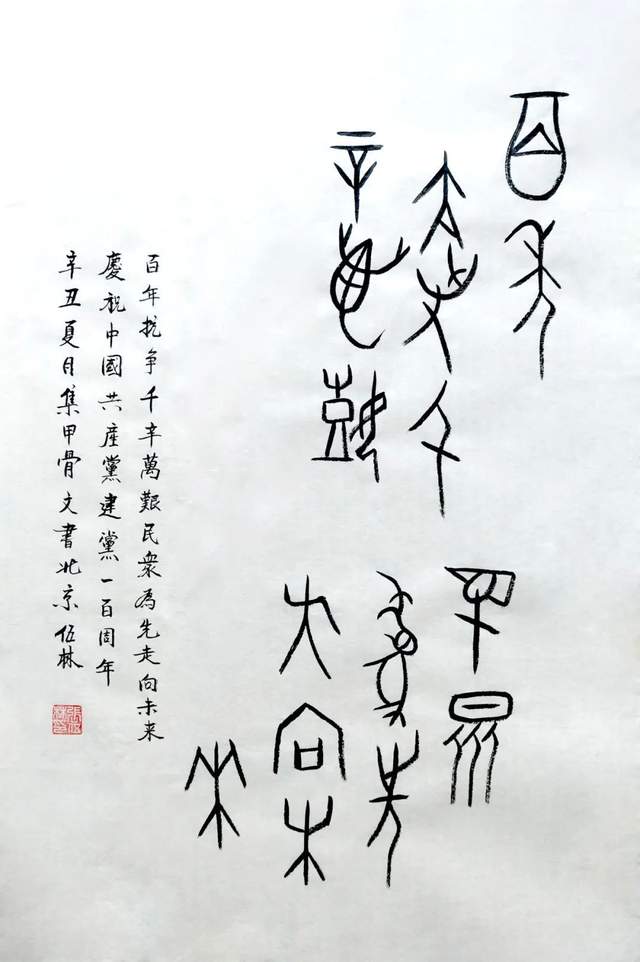 百年
抗争千
辛萬艱
民衆
為先
走向未
来
百年抗争千辛萬艱民衆為先走向未来
慶祝中國共產黨建黨一百周年
辛丑夏月集甲骨文書北京伍林